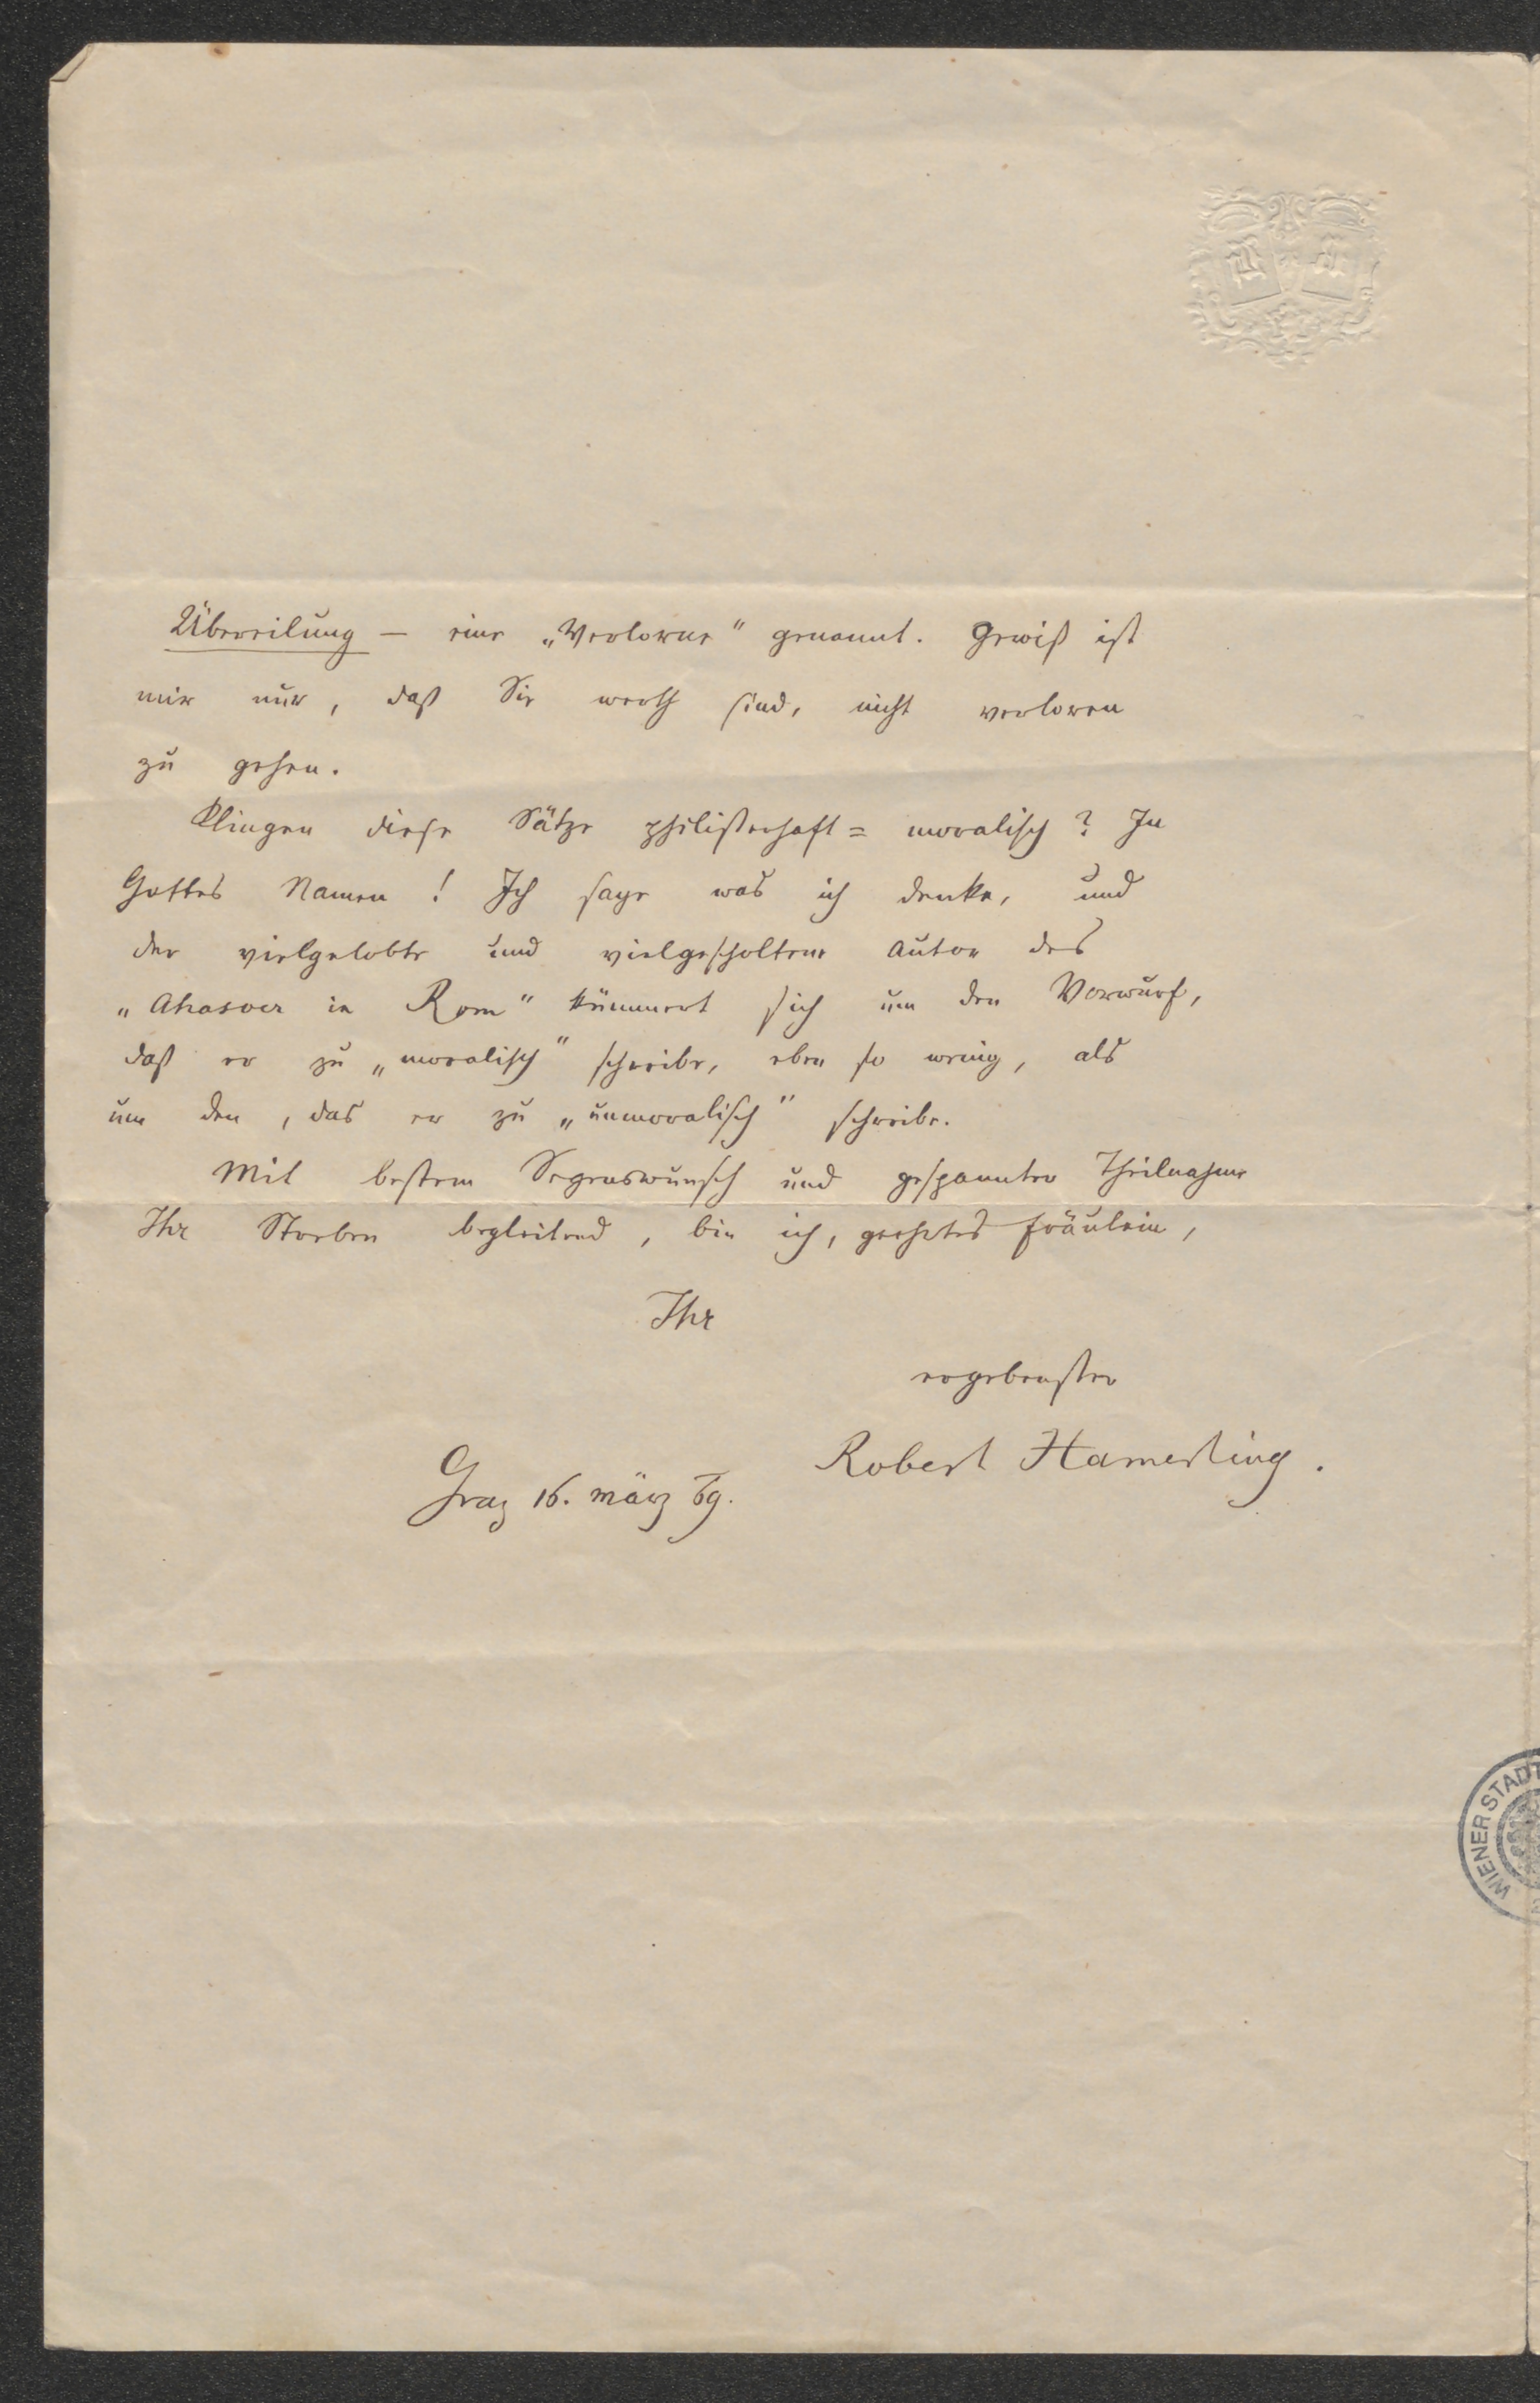 Übereilung — eine „Verlorne" genannt. Gewiß ist
mir nur, daß Sie werth sind, nicht verloren
zu gehen.
Klingen diese Sätze philisterhaft=moralisch? In
Gottes Namen! Ich sage was ich denke, und
der vielgelobte und vielgescholtene Autor des
„Ahasver in Rom" kümmert sich um den Vorwurf,
daß er zu „moralisch" schreibe, eben so wenig, als
um den, das er zu „unmoralisch" schreibe.
Mit bestem Segenswunsch und gespannter Theilnahme
Ihr Streben begleitend, bin ich, geehrtes Fräulein,
Ihr
ergebenster
Robert Hamerling.
Graz 16. März 69.
WIENER STADT